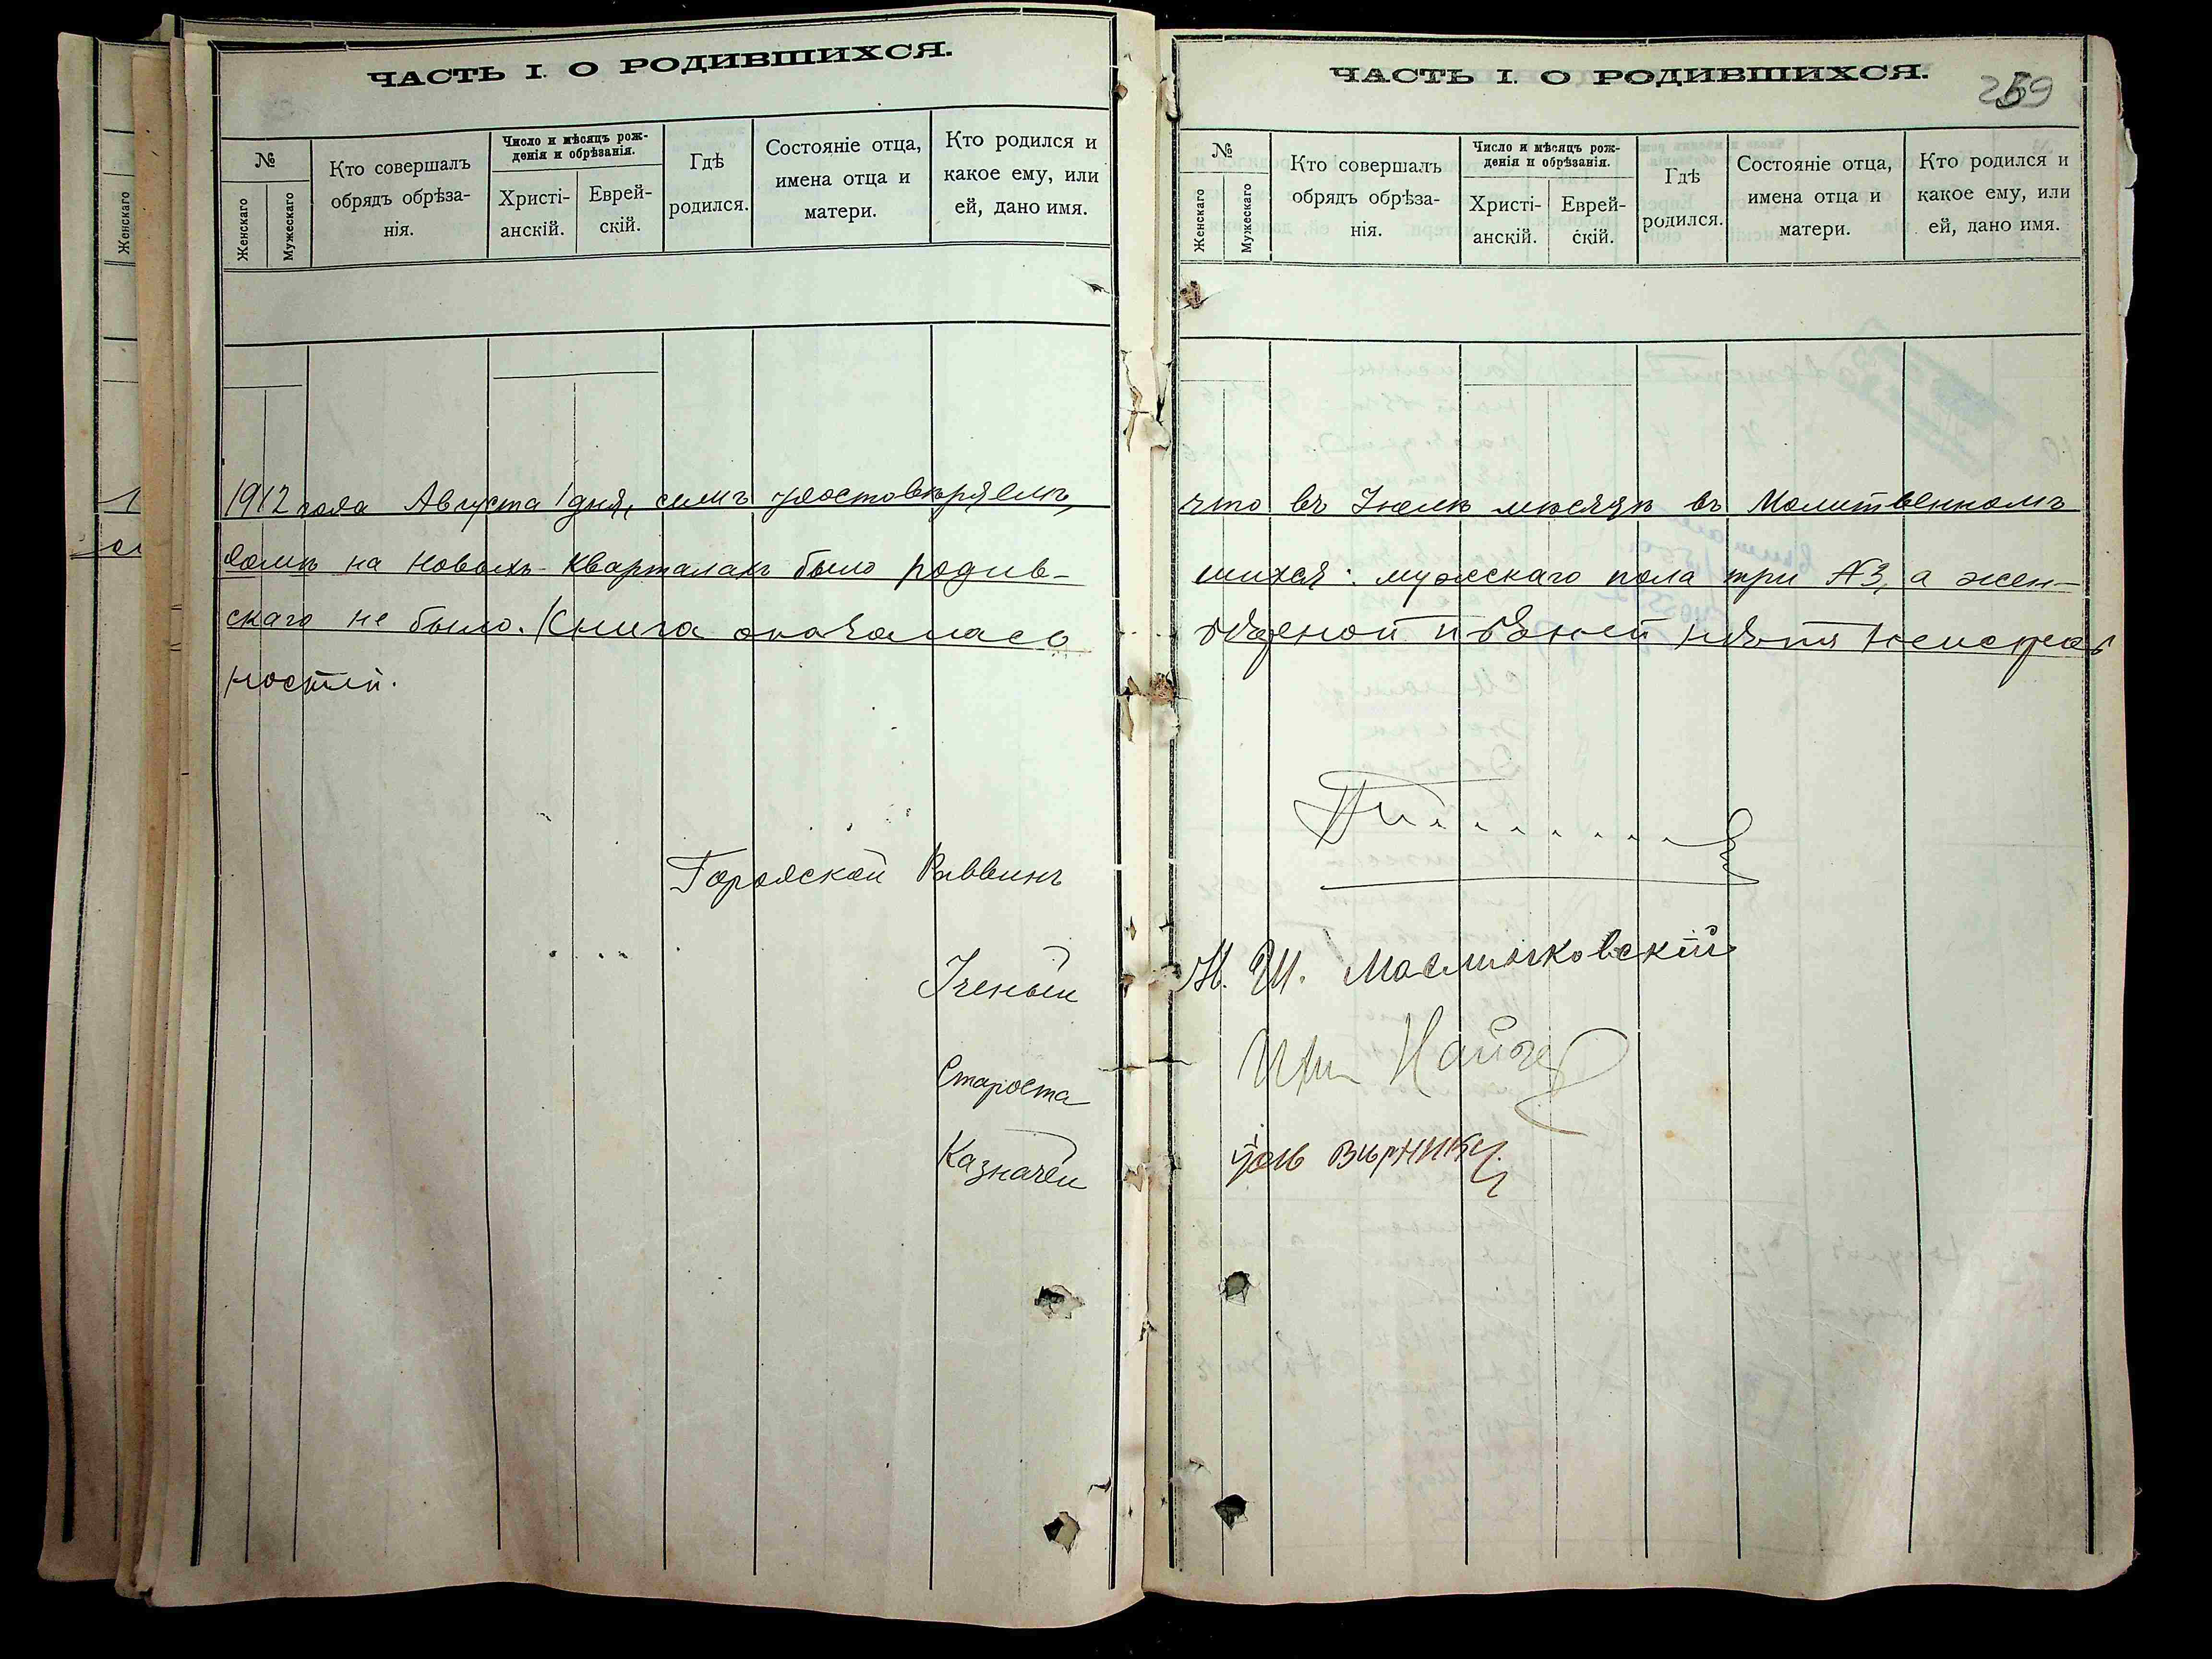 ЧАСТЬ I. О РОДИВШИХСЯ.
№
Женскаго
Мужескаго
Кто совершалъ
обрядъ обрѣза-
нія.
Число и мѣсяцъ рож-
денія и обрѣзанія.
Христі-
анскій.
Еврей-
скій.
Гдѣ
родился.
Состояніе отца,
имена отца и
матери.
Кто родился и
какое ему, или
ей, дано имя.
1912 года Августа 1 дня, симъ удостовѣряемъ,
домѣ на Новыхъ-Кварталахъ было родив-
скаго не было. Книга оказалась
ностей.
Городской Раввинъ
Ученый
Староста
Казначей
Женскаго
ЧАСТЬ I. О РОДИВШИХСЯ.
259
№
Женскаго
Мужескаго
Кто совершалъ
обрядъ обрѣза-
нія.
Число и мѣсяцъ рож-
денія и обрѣзанія.
Христі-
анскій.
Еврей-
скій.
Гдѣ
родился.
Состояніе отца,
имена отца и
матери.
Кто родился и
какое ему, или
ей, дано имя.
что въ Іюлѣ мѣсяцѣ въ Молитвенномъ
шихся: мужескаго пола три №3, а жен-
цѣльной и въ ней нѣтъ неисправ
Н. Ш.